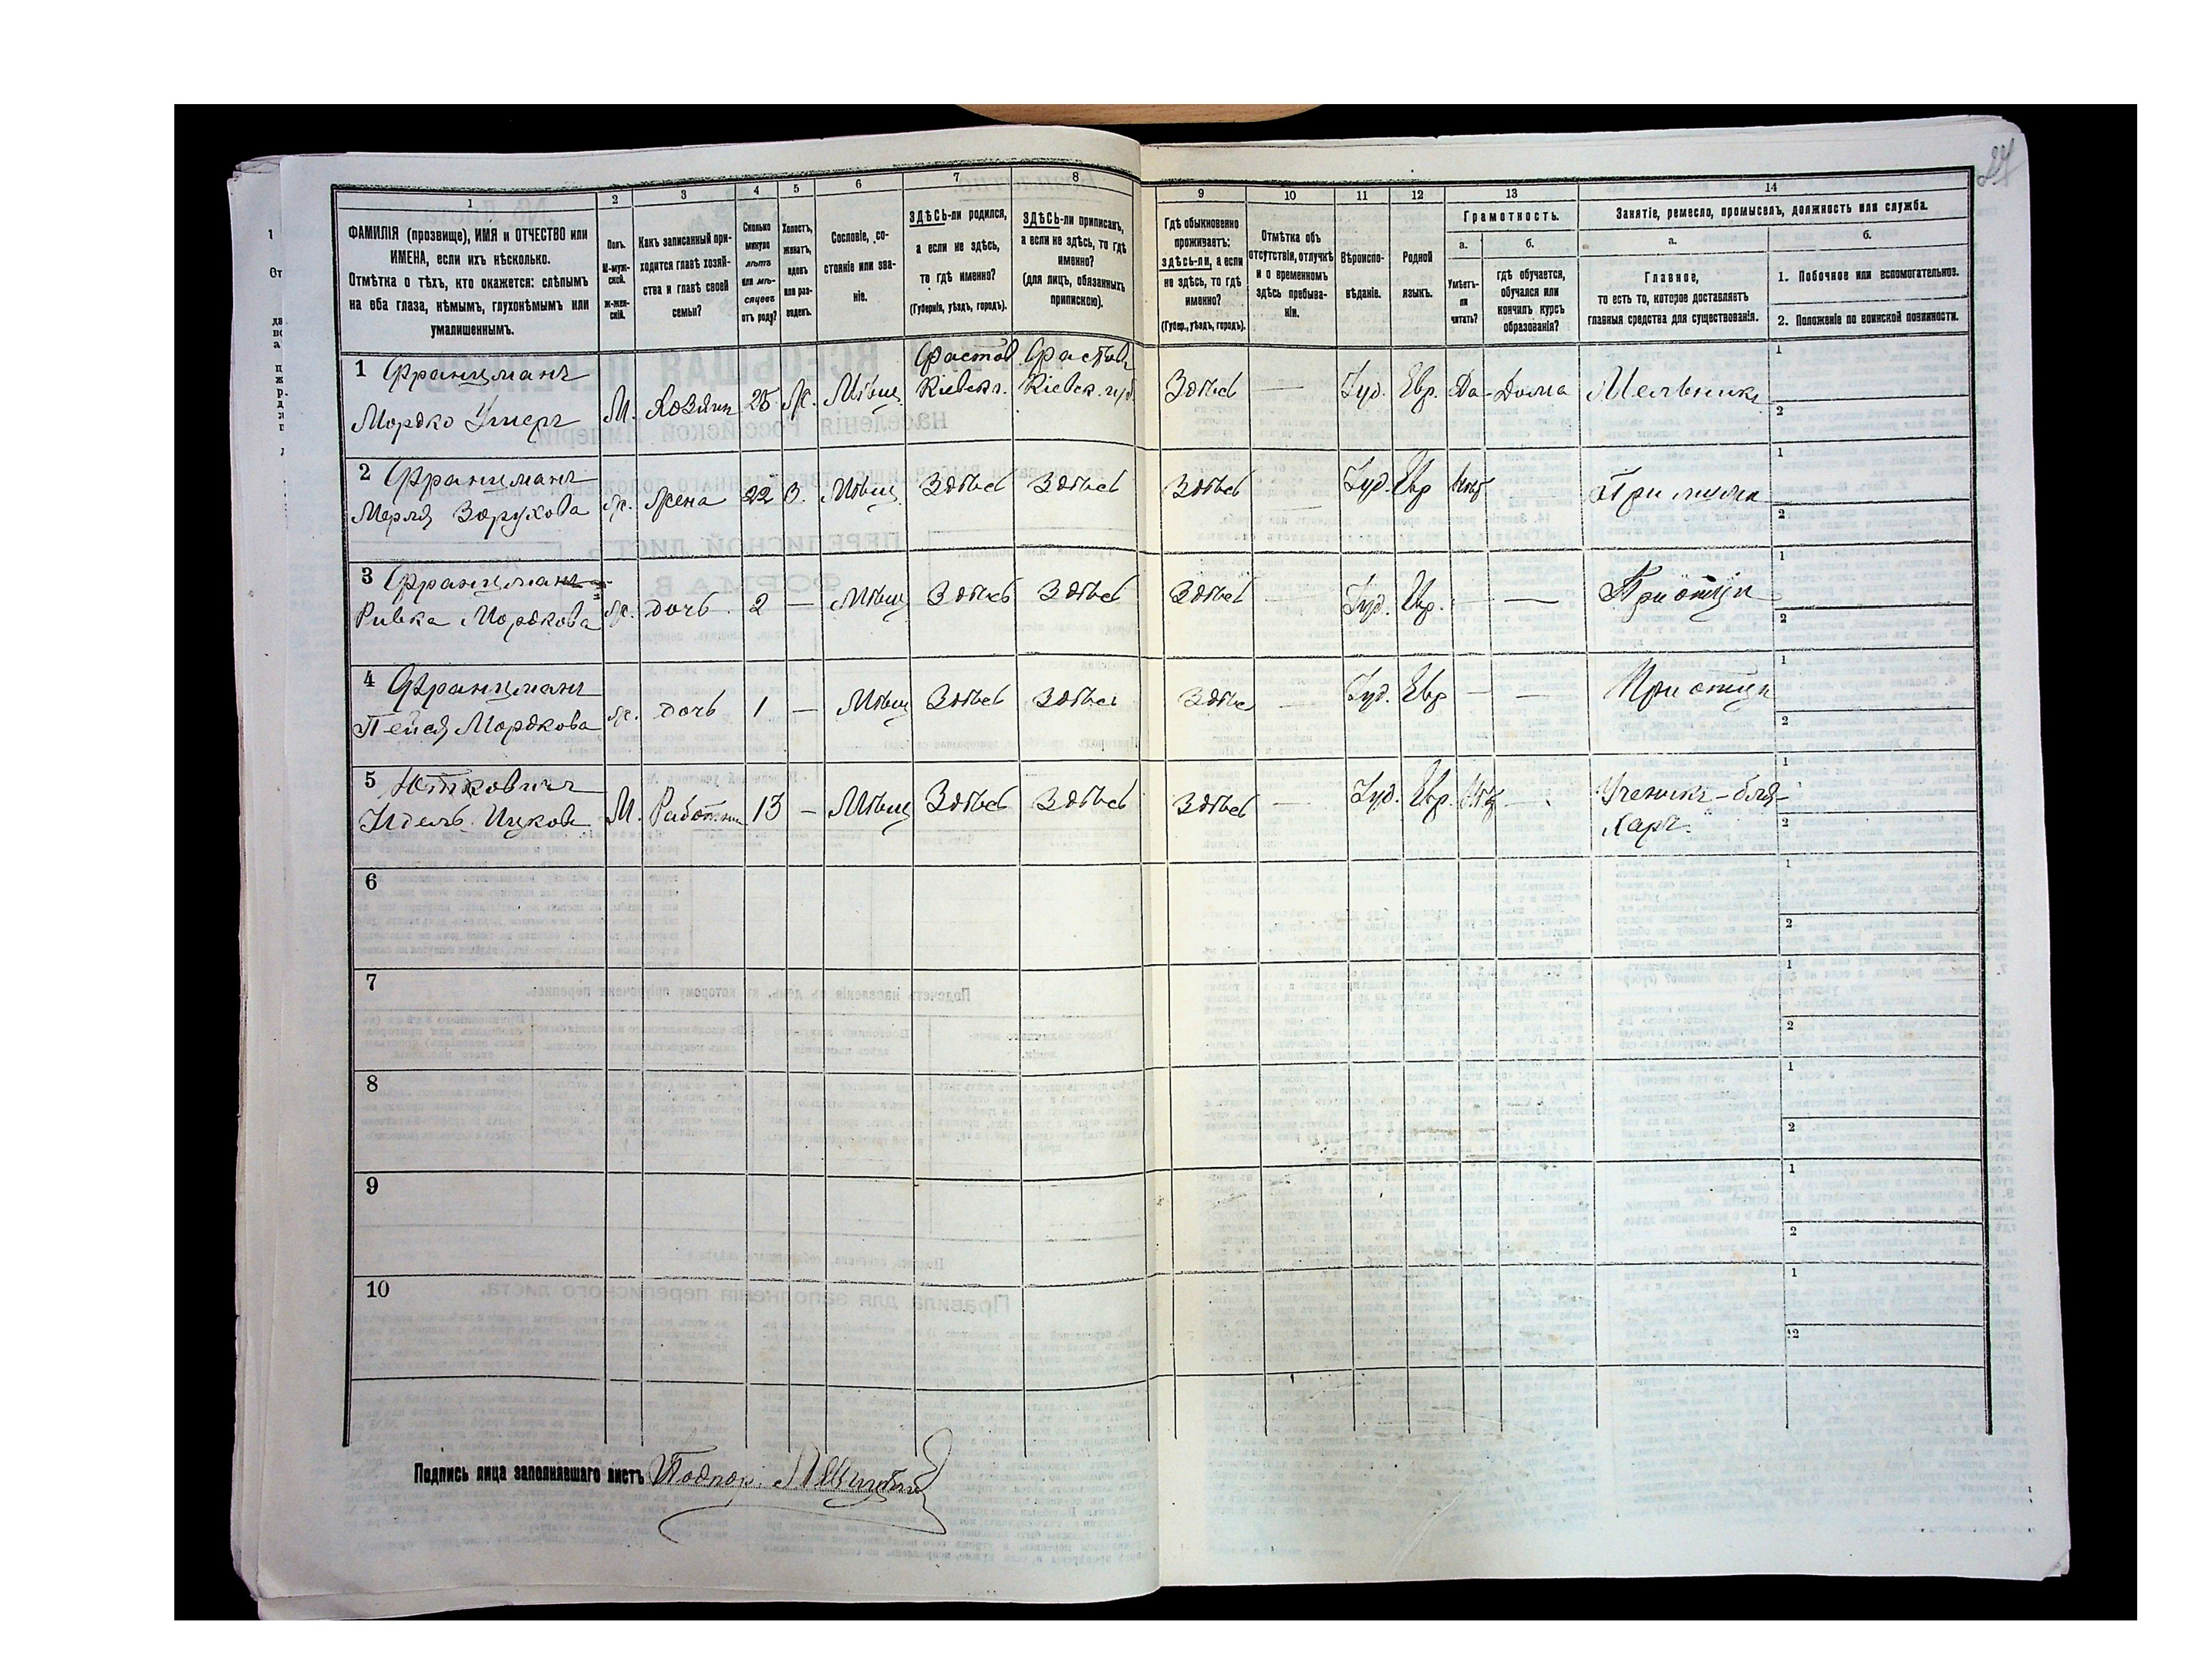 27
1 2 3 4 5 6 7 8 9 10 11 12 13 14
ФАМИЛІЯ (прозвище), ИМЯ и ОТЧЕСТВО или
ИМЕНА, если ихъ нѣсколько.
Отмѣтка о тѣхъ, кто окажется: слѣпымъ
на оба глаза, нѣмымъ, глухонѣмымъ или
умалишеннымъ.
Полъ.
М-муж-
ской.
Ж-жен-
скій.
Какъ записанный при-
ходится главѣ хозяй-
ства и главѣ своей
семьи?
Сколько
минуло
лѣтъ
или мѣ-
сяцевъ
отъ роду?
Холостъ,
женатъ,
вдовъ
или раз-
веденъ.
Сословіе, со-
стояніе или зва-
ніе.
ЗДѢСЬ-ли родился,
а если не здѣсь,
то гдѣ именно?
(Губернія, уѣздъ, городъ).
ЗДѢСЬ-ли приписанъ,
а если не здѣсь, то гдѣ
именно?
(для лицъ, обязанныхъ
припискою).
Гдѣ обыкновенно
проживаетъ:
здѣсь-ли, а если
не здѣсь, то гдѣ
именно?
(Губер., уѣздъ, городъ).
Отмѣтка объ
отсутствіи, отлучкѣ
и о временномъ
здѣсь пребыва-
ніи.
Вѣроиспо-
вѣданіе.
Родной
языкъ.
Грамотность.
а. б.
Умѣетъ-
ли
читать?
гдѣ обучается,
обучался или
кончилъ курсъ
образованія?
Занятіе, ремесло, промыселъ, должность или служба.
а. б.
Главное,
то есть то, которое доставляетъ
главныя средства для существованія.
1. Побочное или вспомогательное.
2. Положеніе по воинской повинности.
1 Францманъ
Мордко М. Хозяин 25 Ж. Мѣщ. Фастов Кіевск. Фастов Кіевск. губ. Здѣсь — Іуд. Евр. Да Дома Мельникъ
1
2
2 Францманъ
Мерля ж. Жена 22 З. Мѣщ. Здѣсь Здѣсь Здѣсь — Іуд. Евр При мужѣ
1
2
3 Францманъ
Ривка Мордкова ж. дочь 2 — Мѣщ Здѣсь Здѣсь Здѣсь — Іуд. Евр. — При отцѣ
1
2
4 Францманъ
Пейся Мордкова ж. дочь 1 — Мѣщ Здѣсь Здѣсь Здѣсь — Іуд. Евр — — При отцѣ
1
2
5
Идель Ицков М. Работник 13 — Мѣщ Здѣсь Здѣсь Здѣсь — Іуд. Евр. — Ученикъ-бля-
харъ.
1
2
6
1
2
7
1
2
8
1
2
9
1
2
10
1
2
Подпись лица заполнявшаго листъ